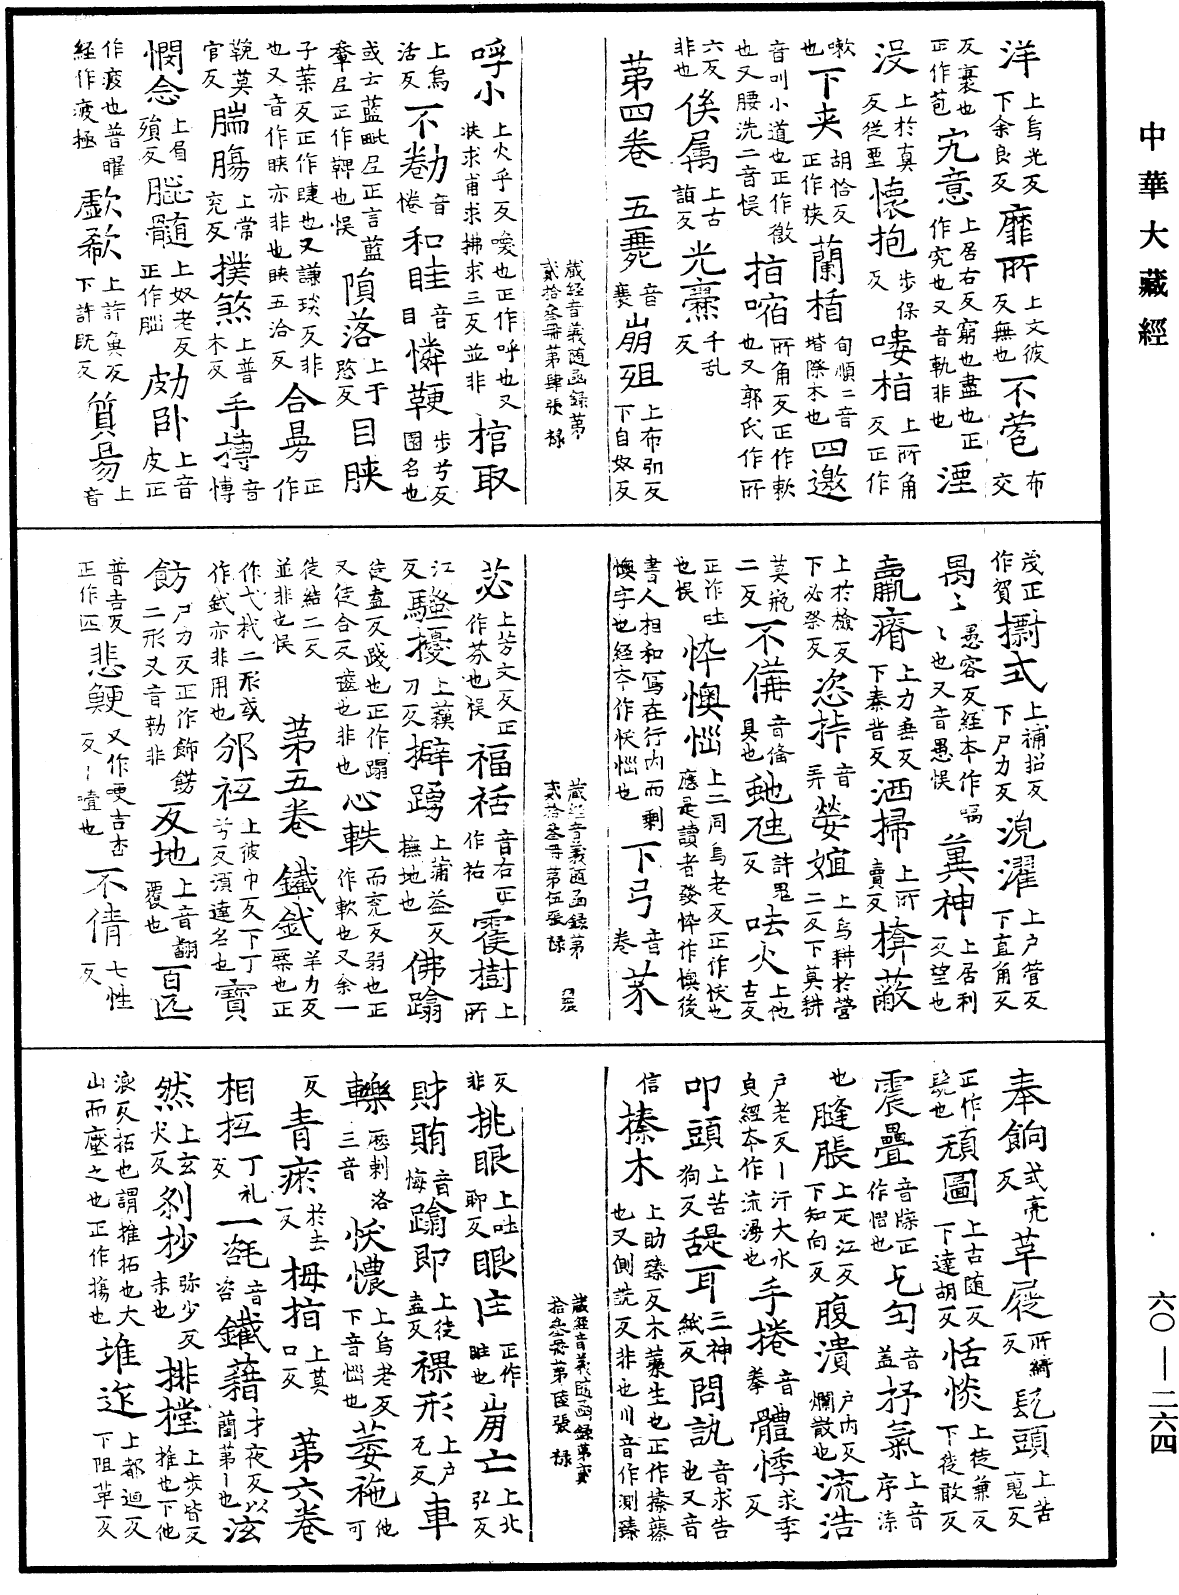 中華大藏經
洋 上烏光反下余良反 靡所 上文彼反無也 不蒼 布交
反裹也正作苞 宄意 上居右反窮也盡也正作究也又音軌非也 湮
没 上於真反從垔 懷抱 步保反 嘍栢 上所角反正作
嗽也 下夹 胡恰反正作狹 蘭楯 旬順二音堦際木也 四邀
音叫小道也正作徼也又腰洗二音悮 栢㗜 所角反正作軟也又郭氏作所
六反非也 俟属 上古誀反 光㯱 千乱反
第四卷 五㲋 音㐮 崩殂 上布弘反下自奴反
藏經音義随函録第貳拾叁冊第肆張 禄
呼小 上火乎反喚也正作呼也又㧒求甫求拂求三反並非 棺取
上烏活反 不勌 音惓 和眭 音目 憐鞕 步兮反園名也
或云藍毗尼正言藍鞞尼正作鞞也悮 隕落 上于愍反 目䀹
子葉反正作睫也又謙琰反非也又音作䀹亦非也䀹五洽反 合昜 正作
鞔莫官反 腨腸 上常兖反 撲煞 上普木反 手摶 音愽
憫念 上眉殞反 𦠅髓 上奴老反正作腦 㓟卧 上音皮正
作疲也普曜經作疲極 歔欷 上許魚反下許既反 質昜 上音
茂正作貿 㨶式 上補招反下尸力反 涗濯 上户管反下直角反
禺〻 愚容反經本作喁〻也又音愚悮 兾神 上居利反望也
羸瘠 上力垂反下秦昔反 洒掃 上所賣反 揜蔽
上於檢反下必祭反 恣挊 音弄 嫈嫇 上烏耕於營二反下莫耕
莫瓶二反 不俻 音俻具也 虵虺 許鬼反 呿火 上他古反
正作吐也悮 忰懊惱 上二同烏老反正作懊也應是讀者發忰作懊後
書人相和寫在行内而剩懊字也經本作懊惱也 下弓 音卷 苶
藏經音義随函録第貳拾叁冊第伍張 禄
苾 上芳文反正作芬也悮 福祜 音右正作祐 䨥樹 上所
江反 騷擾 上蘓刀反 擗踴 上蒲益反撫地也 佛蹹
徒盍反踐也正作蹋又徒合反䠟也非也 心軼 而兖反弱也正作軟也又余一
徒結二反並非也悮 第五卷 鐵釴 羊力反橜也正
作弋杙二形或作釴亦非用也 邠祁 上彼巾反下丁兮反湏達名也 寶
飭 尸力反正作飾餝二形又音勑非 反地 上音翻覆也 百匹
普吉反正作匹 悲鯁 又作哽吉杏反丨噎也 不倩 七性反
奉餉 式亮反 草屣 所綺反 髡頭 上苦䰟反
正作髡也 頑圖 上古随反下達胡反 恬惔 上徒兼反下徒敢反
震疊 音牒正作慴也 乞匃 音盖 抒氣 上音序深
也 膖脹 上疋江反下知向反 腹潰 户内反爛散也 流浩
户老反丨汗大水皃經本作流湧也 手捲 音拳 體悸 求季反
叩頭 上苦狗反 舓耳 三神紙反 問訊 音求告也又音
信 搸木 上助臻反木藂生也正作榛蓁也又側詵反非也川音作測臻
藏經音義随函録第貳拾叁冊第陸張 禄
反非 挑眼 上吐聊反 眼㕵 正作睢也 崩亡 上北弘反
財賄 音悔 蹹即 上徒盍反 裸形 上户瓦反 車
轢 厯剌洛三音 懊憹 上烏老反下音惱也 萎袘 他可
反 青瘀 於去反 栂指 上莫口反 第六卷
相抵 丁礼反 一㿱 音咨 鐵藉 才夜反以藺第丨也 泫
然 上玄犬反 㓨杪 弥少反末也 排㯑 上步皆反推也下他
浪反拓也謂推拓也大山而壓之也正作搨也 堆迮 上都迴反下阻革反
六〇—二六四